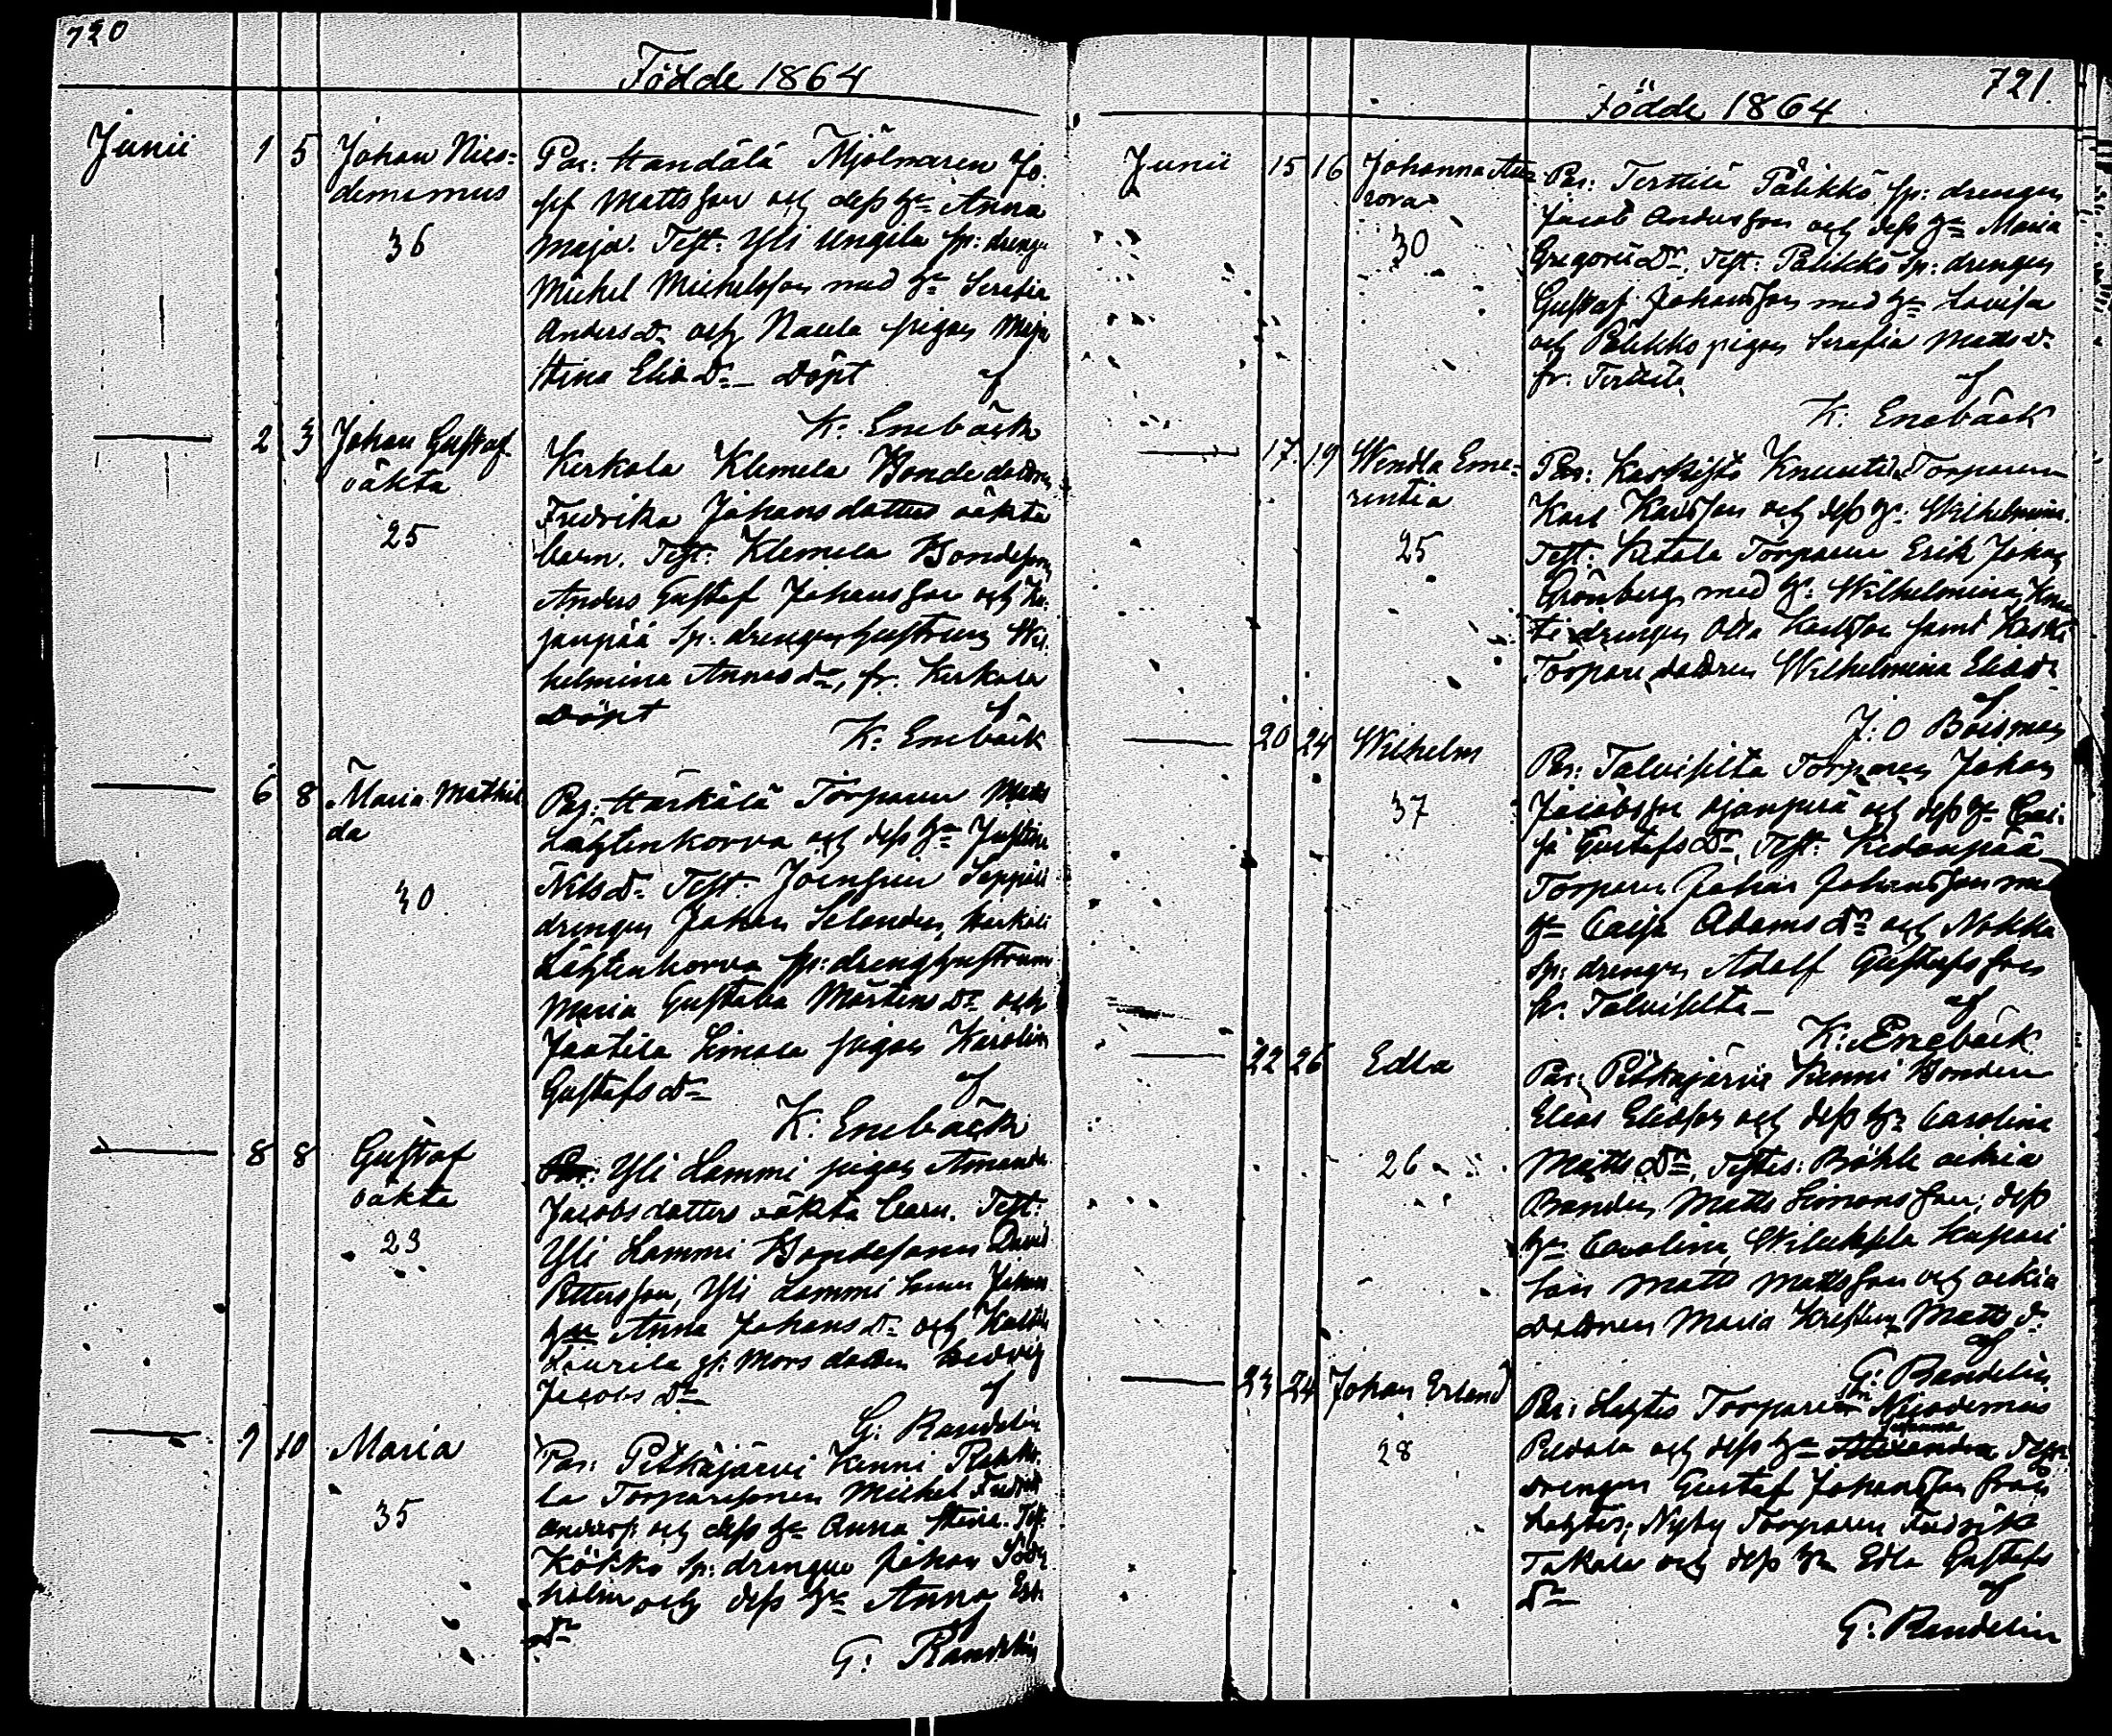 720
Födde 1864
Junii 1 5 Johan Nico=
demamus
36
Par: Handälä Mjölnaren Jo.
sef Mattsson och dess h:u Anna
Maja. Test: Yli Ungila sp: dreng
Michel Michelsson med h:u Serafia
Anders Dr och Naula pigan Maja
Stina Elia Dr — Döpt af
K: Enebäck
2 3 Johan Gustaf
oäkta
25
Kerkola Klemela Bonde dottren
Fredrika Johansdotters oäkta
barn. Test: Klemela Bondeson
Anders Gustaf Johansson och
janpää sp: drengen hustrun Wil:
helmina Annas dr, fr. Kerkola
Döpt af
K: Enebäck
6 8 Maria Mathil
da
30
Par: Härkälä Torparen Matts
Lähtenkorva och dess h:u Justina
Nils D. Test: Joensuu Seppälä
drengen Johan Selander, Härkälä
Lähtenkorva sp: dreng hustrun
Maria Gustava Mårtens Dr och
Jaatila Simola pigan Karolin
Gustafs Dr af
K: Enebäck
8 8 Gustaf
oäkta
23
Par: Yli Lammi pigan Amanda
Jacobsdotters oäkta barn. Test:
Yli Lammi Bondesonen David
Pettersson, Yli Lammi Johan
h:u Anna Johans Dr och
Laurila Mors dotter Hedvig
Jacobs Dr af
G: Randelin
9 10 Maria
35
Par: Pitkäjärvi Kenni
la Torparsonen Michel Fredrik
Anders och dess h:u Anna Stina. Test.
Kökkö sp: drengen Johan Söder
holm och dess h:u Anna
Dr af
G: Randelin
721.
Födde 1864
Junii 15 16 Johanna Au=
rora
30
Par: Terttilä Pälikkö sp: drengen
Jacob Andersson och dess h:u Maria
Gregorii Dr, Test: Pälikkö sp: drengen
Gustaf Johansson med h:u Lovisa
och Pälikkö pigan Serafia Matts Dr
fr. Terttilä af
K: Enebäck
17. 19 Wendla Eme=
rentia
25
Par: Kaskisto Knuutila Torparen
Karl Karlsson och dess h: Wilhelmina.
Test: Ketola Torparen Erik Johan
Grönberg med h: Wilhelmina, Knuu
ti drengen Otto Karlsson samt Kaski
Torpare dottren Wilhelmina Elias dr
af
J: O Boisman
20 24 Wilhelm
37
Par: Talvisilta Torparen Johan
Jacobsson Ojanperä och dess h:u Cai:
sa Gustafs Dr, Test: Kedonpää
Torparen Johan Johansson med
h:u Caisa Adams Dr och Nokka
sp: drengen Adolf Gustafsson
fr. Talvisilta — af
K: Enebäck
22 26 Edla
26
Par: Pitkäjärvi Kenni Bonden
Elias Eliasson och dess h:u Carolina
Matts Dr, Testes: Böhle
Bonden Matts Simonsson, dess
h:u Carolina, Kaspari
Son Matts Mattsson och
dottren Maria Kristina Matts D.
af
G: Randelin
23 24 Johan Erland
28
Par: Lahtis Torparen son Nicodemus
Pietola och dess h:u Alexandra Johanna Test:
drengen Gustaf Johansson från
Lahtis, Nyby Torparen Fredrik
Takala och dess h:u Edla Gustafs
Dr af
G: Randelin